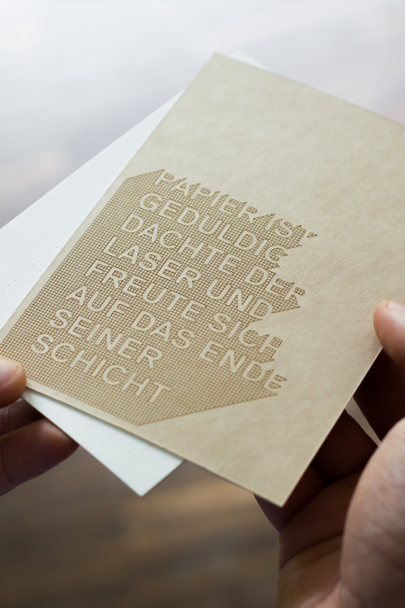 PAPIER IST
GEDULDIG
DACHTE DER
LASER UND
FREUTE SICH
AUF DAS ENDE
SEINER
SCHICHT